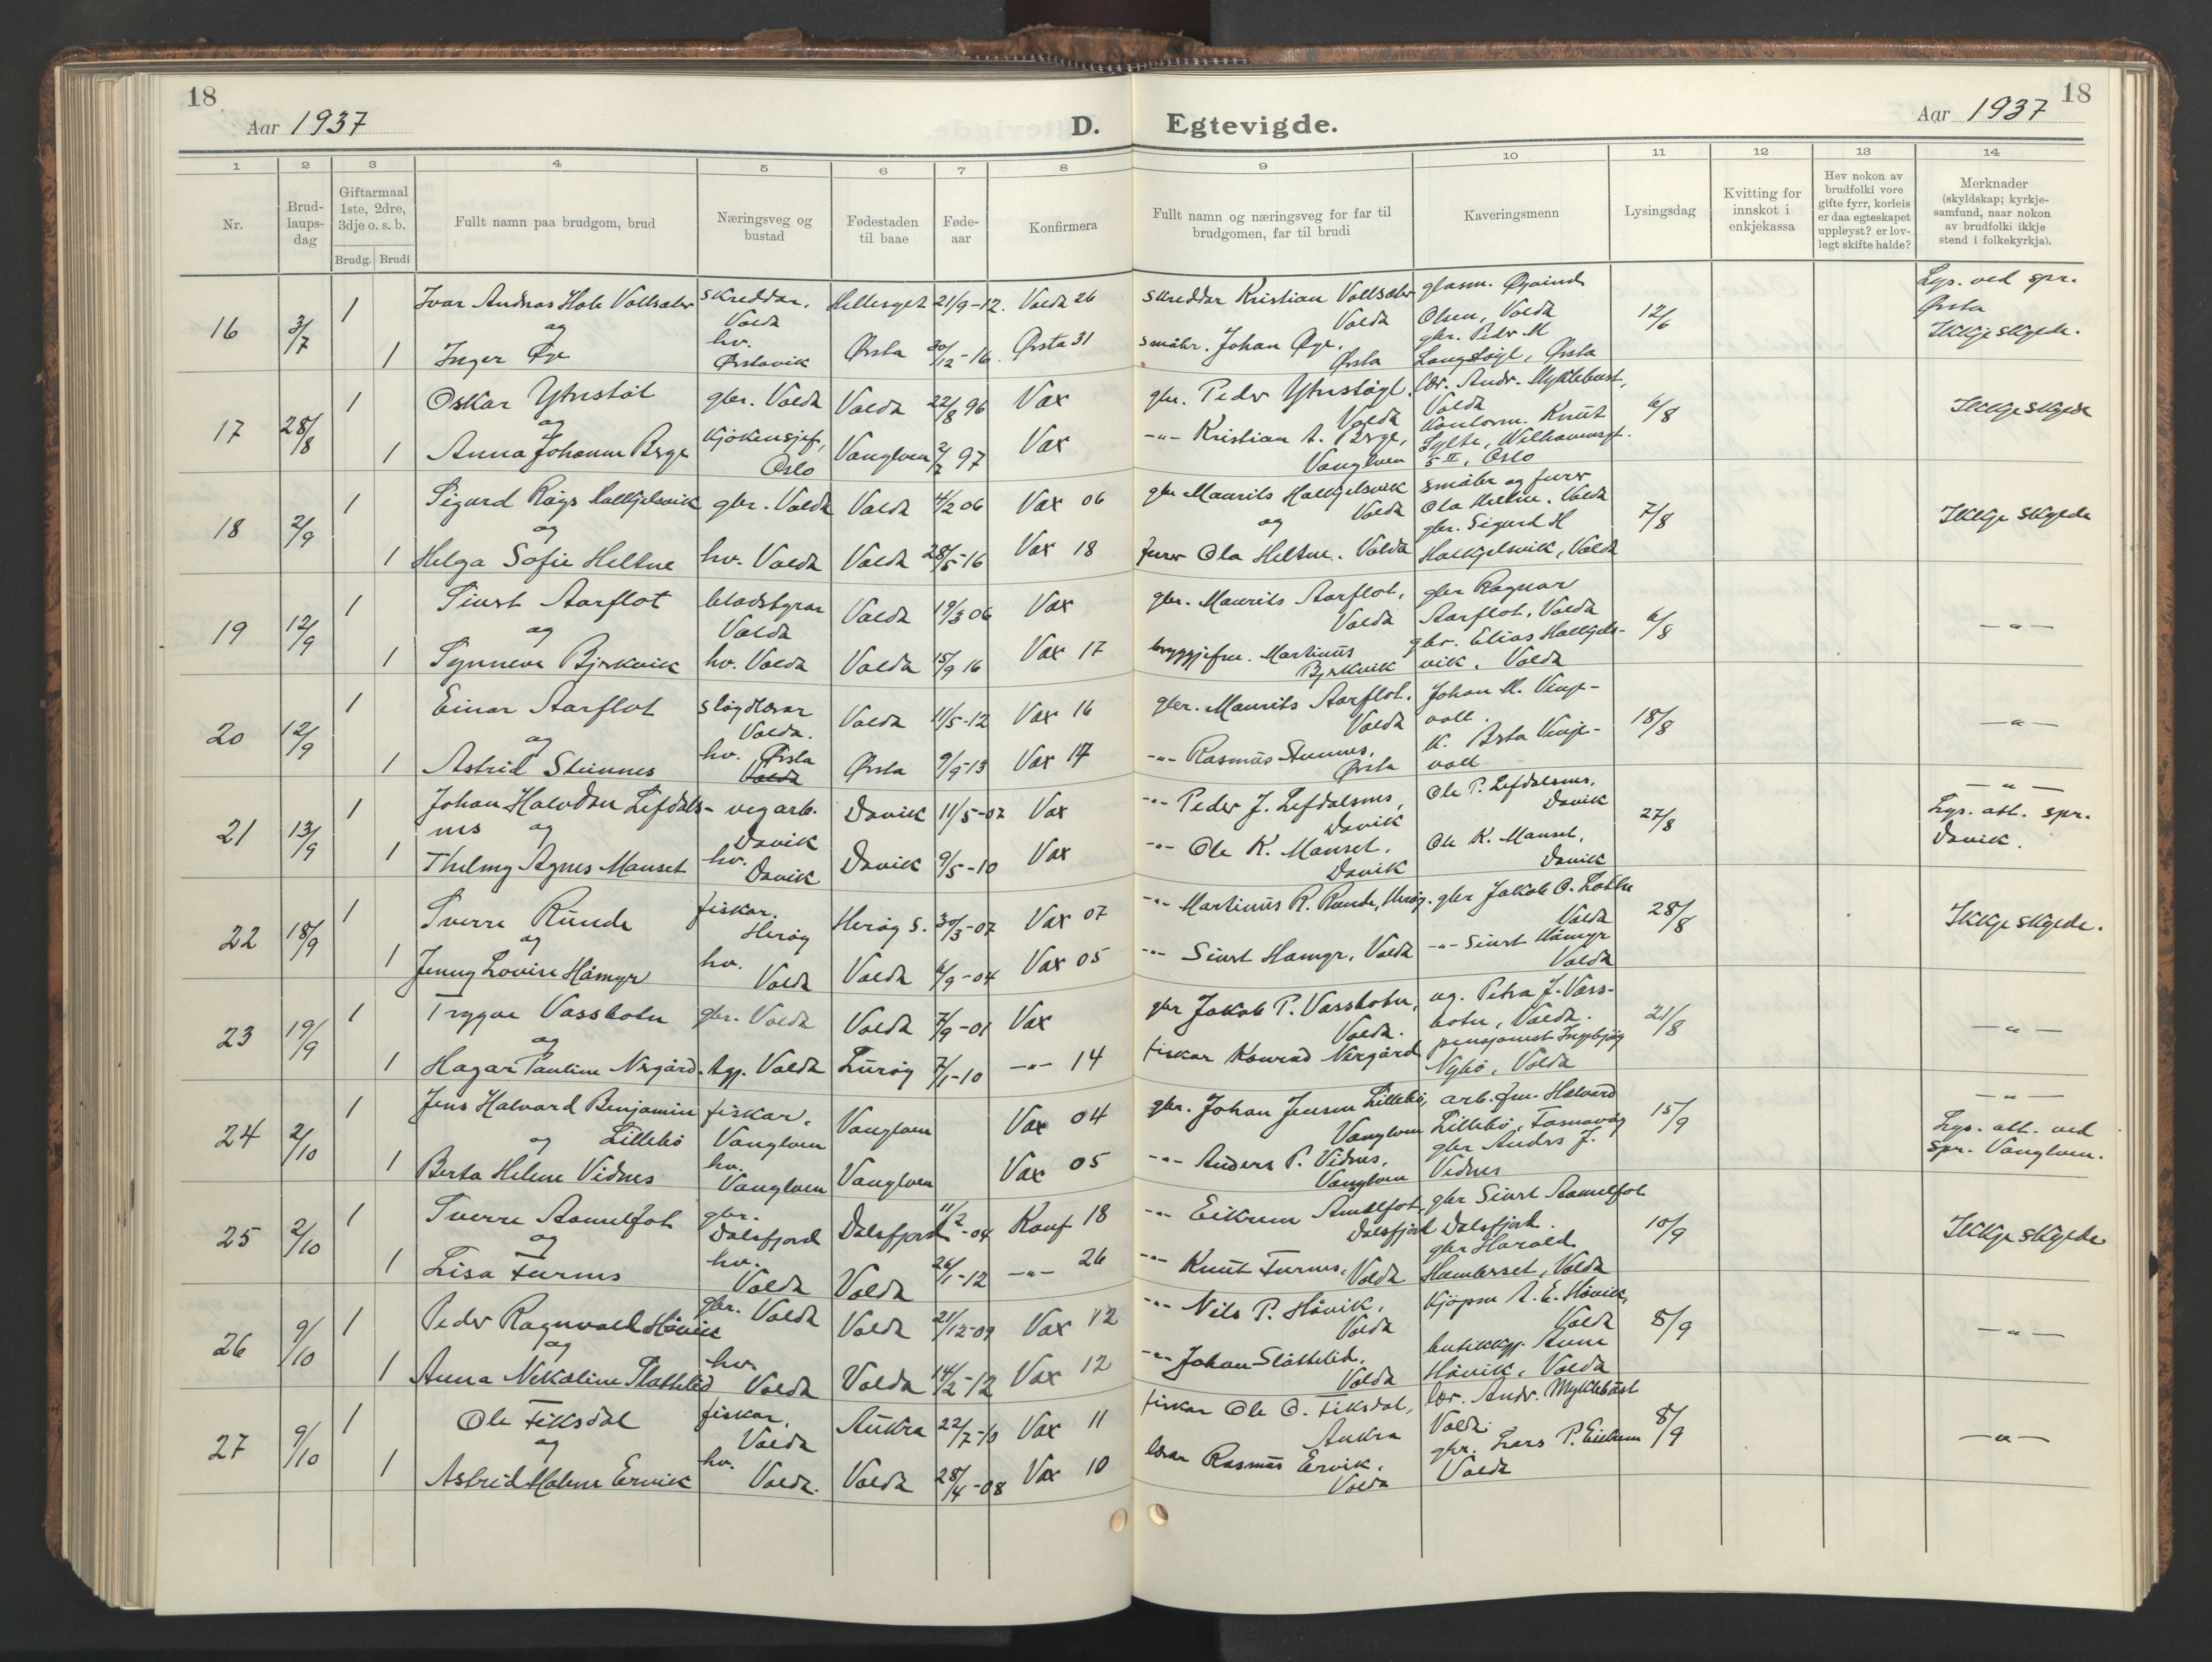 18
Aar 1937
D. Egtevigde.
Aar 1937
18
1 2 3 4 5 6 7 8 9 10 11 12 13 14
Nr.
Brud-
laups-
dag
Giftarmaal
1ste, 2dre,
3dje o. s. b.
Brudg. Brudi
Fullt namn paa brudgom, brud
Næringsveg og
bustad
Fødestaden
til baae
Føde-
aar
Konfirmera
Fullt namn og næringsveg for far til
brudgomen, far til brudi
Kaveringsmenn
Lysingsdag
Kvitting for
innskot i
enkjekassa
Hev nokon av
brudfolki vore
gifte fyrr, korleis
er daa egteskapet
uppløyst? er lov-
legt skifte halde?
Merknader
(skyldskap; kyrkje-
samfund, naar nokon
av brudfolki ikkje
stend i folkekyrkja).
16 3/7 1 Ivar Andreas Hole Vollsæter skreddar, Volda 21/9-12. Volda 26 skreddar Kristian Vollsæter Volda glasm. Øyvind Olsen, Volda 12/6 Lys. ved spr. Ørsta
og
1 Inger Øye hv. Ørstavik Ørsta 30/12-16. Ørsta 31 småbr. Johan Øye, Ørsta gbr. Peder M Ørsta Ikkje skylde.
17 28/8 1 Oskar Ytrestøl gbr. Volda Volda 22/8 96 Vax gbr. Peder Ytrestøyl, Volda lær. Andr. Myklebust, Volda 6/8 Ikkje skylde
og
1 Anna Johanne Berge kjøkensjef, Oslo Vanylven 97 Vax -"- Kristian A. Berge, Vanylven Knut Sylte, 5 II, Oslo
18 2/9 1 Sigurd Røys Halkjelsvik gbr. Volda Volda 4/2 06 Vax 06 gbr Maurits Halkjelsvik Volda småbr og furer Ola Heltne, Volda 7/8 Ikkje skylde
og
1 Helga Sofie Heltne hv. Volda Volda 28/5-16 Vax 18 furer Ola Heltne, Volda gbr. Sigurd H Halkjelsvik, Volda
19 12/9 1 Sivert Aarflot bladstyrar Volda Volda 19/3 06 Vax gbr. Maurits Aarflot, Volda gbr Ragnar Aarflot, Volda 6/8 -"-
og
1 Synneva Bjørkvik hv. Volda Volda 15/9 16 Vax 17 bryggjefm. Martinus Bjørkvik gbr. Elias Halkjels- vik, Volda
20 12/9 1 Einar Aarflot sløydlærar Volda. Volda 11/5-12 Vax 16 gbr. Maurits Aarflot, Volda Johan M. Vinje- voll. 18/8 -"-
og
1 Astrid Steinnes hv. Ørsta Volda Ørsta 9/9-13 Vax 17 -"- Rasmus Steinnes, Ørsta K. Berta Vinje- voll
21 13/9 1 Johan Halvdan Lefdals- nes vegarb. Davik Davik 11/5-07 Vax -"- Peder J. Lefdalsnes, Davik Ole P. Lefdalsnes, Davik 27/8 -"- Lys. att. spr. Davik.
og
1 Thelmy Agnes Manset hv. Davik Davik 9/5-10 Vax -"- Ole K. Manset, Davik Ole K. Manset, Davik
22 18/9 1 Sverre Runde fiskar, Herøy Herøy S. 30/3-07 Vax 07 -"- Martinus R. Runde, Herøy. gbr Jakob O. Volda 28/8 Ikkje skylde.
og
1 Jenny Lovise Håmyr hv. Volda Volda 6/9-04 Vax 05 -"- Sivert Hamyr, Volda -"- Sivert Håmyr Volda
23 19/9 1 Trygve Vassbotn gbr. Volda Volda 7/9-01 Vax gbr Jakob P. Vassbotn, Volda. ug. Petra J. Vass- botn, Volda. 21/8 -"-
og
1 Hagar Pauline Norgård. Volda Lurøy 7/1-10 -"- 14 fiskar Konrad Norgård pensjonist Ingebjørg Nybø, Volda
24 2/10 1 Jens Halvard Benjamin Lillebø fiskar, Vanylven Vanylven Vax 04 gbr. Johan Jensen Lillebø, Vanylven arb.fm. Halvard Lillebø, Fosnavåg 15/9 -"- Lys. att. ved spr. Vanylven.
og
1 Berta Helene Vidnes hv. Vanylven Vanylven Vax 05 -"- Anders P. Vidnes, Vanylven gbr Anders J. Vidnes
25 2/10 1 Sverre Aamelfot gbr. Dalsfjord Dalsfjord 11/2-04 Konf 18 -"- Eikrem Aamelfot, Dalsfjord gbr Sivert Aamelfot Dalsfjord. 10/9 Ikkje skylde
og
1 Lisa Furnes hv. Volda Volda 26/1-12 -"- 26 -"- Knut Furnes, Volda gbr Harald Humberset, Volda
26 9/10 1 Peder Ragnvald Høvik gbr. Volda Volda 21/12-09 Vax 12 -"- Nils P. Håvik, Volda kjøpm A. E. Høvik, Volda 8/9 -"-
og
1 Anna Nikoline Slottelid hv. Volda Volda 14/2-12 Vax 12 -"- Johan Slåttelid, Volda butikkgj. Anne Håvik, Volda
27 9/10 1 Ole Fiksdal fiskar, Volda Aukra 22/7-10 Vax 11 fiskar Ole O. Fiksdal, Aukra lær. Andr. Myklebust Volda 8/9 -"-
og
1 Astrid Malene Ervik hv. Volda. Volda 28/4-08 Vax 10 lærar Rasmus Ervik, Volda gbr. Lars P. Eikrem Volda